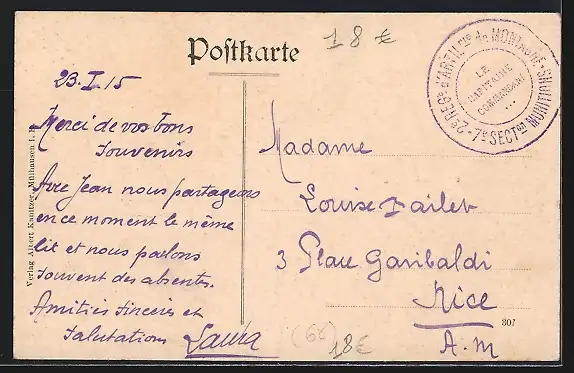 Postkarte
18 €
23.I.15
Merci de vos bons
souvenirs
Avec Jean nous partageons
en ce moment le même
lit et nous parlons
souvent des absentes.
Amitiés sincères et
salutations
Madame
Louise
3 Place Garibaldi
Nice
A.M
307
(6€)
18€
Verlag Albert Kanitzer, Mülhausen i. E.
2e REGt d'ARTILrie de MONTAGNE
7e SECTon MUNITI
LE
CAPITAINE
COMMANDANT